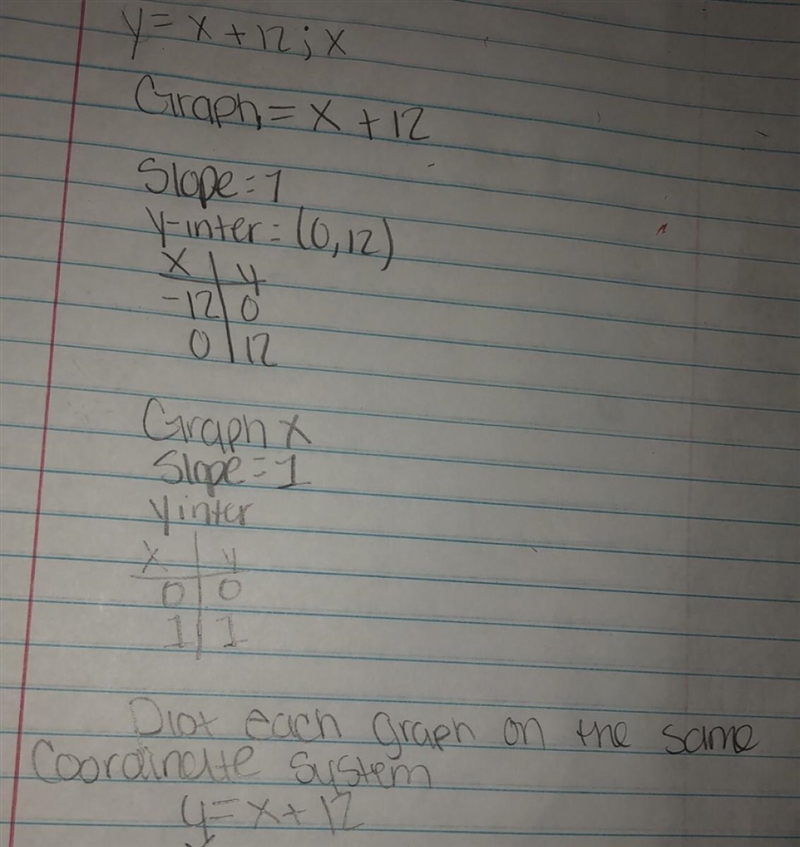 y = x + 12 ; x
Graph = x + 12
Slope = 1
Y-inter = (0, 12)
x | y
-12 | 0
0 | 12
Graph x
Slope = 1
Y inter
x | y
0 | 0
1 | 1
Plot each graph on the same
Coordinate system
y = x + 12